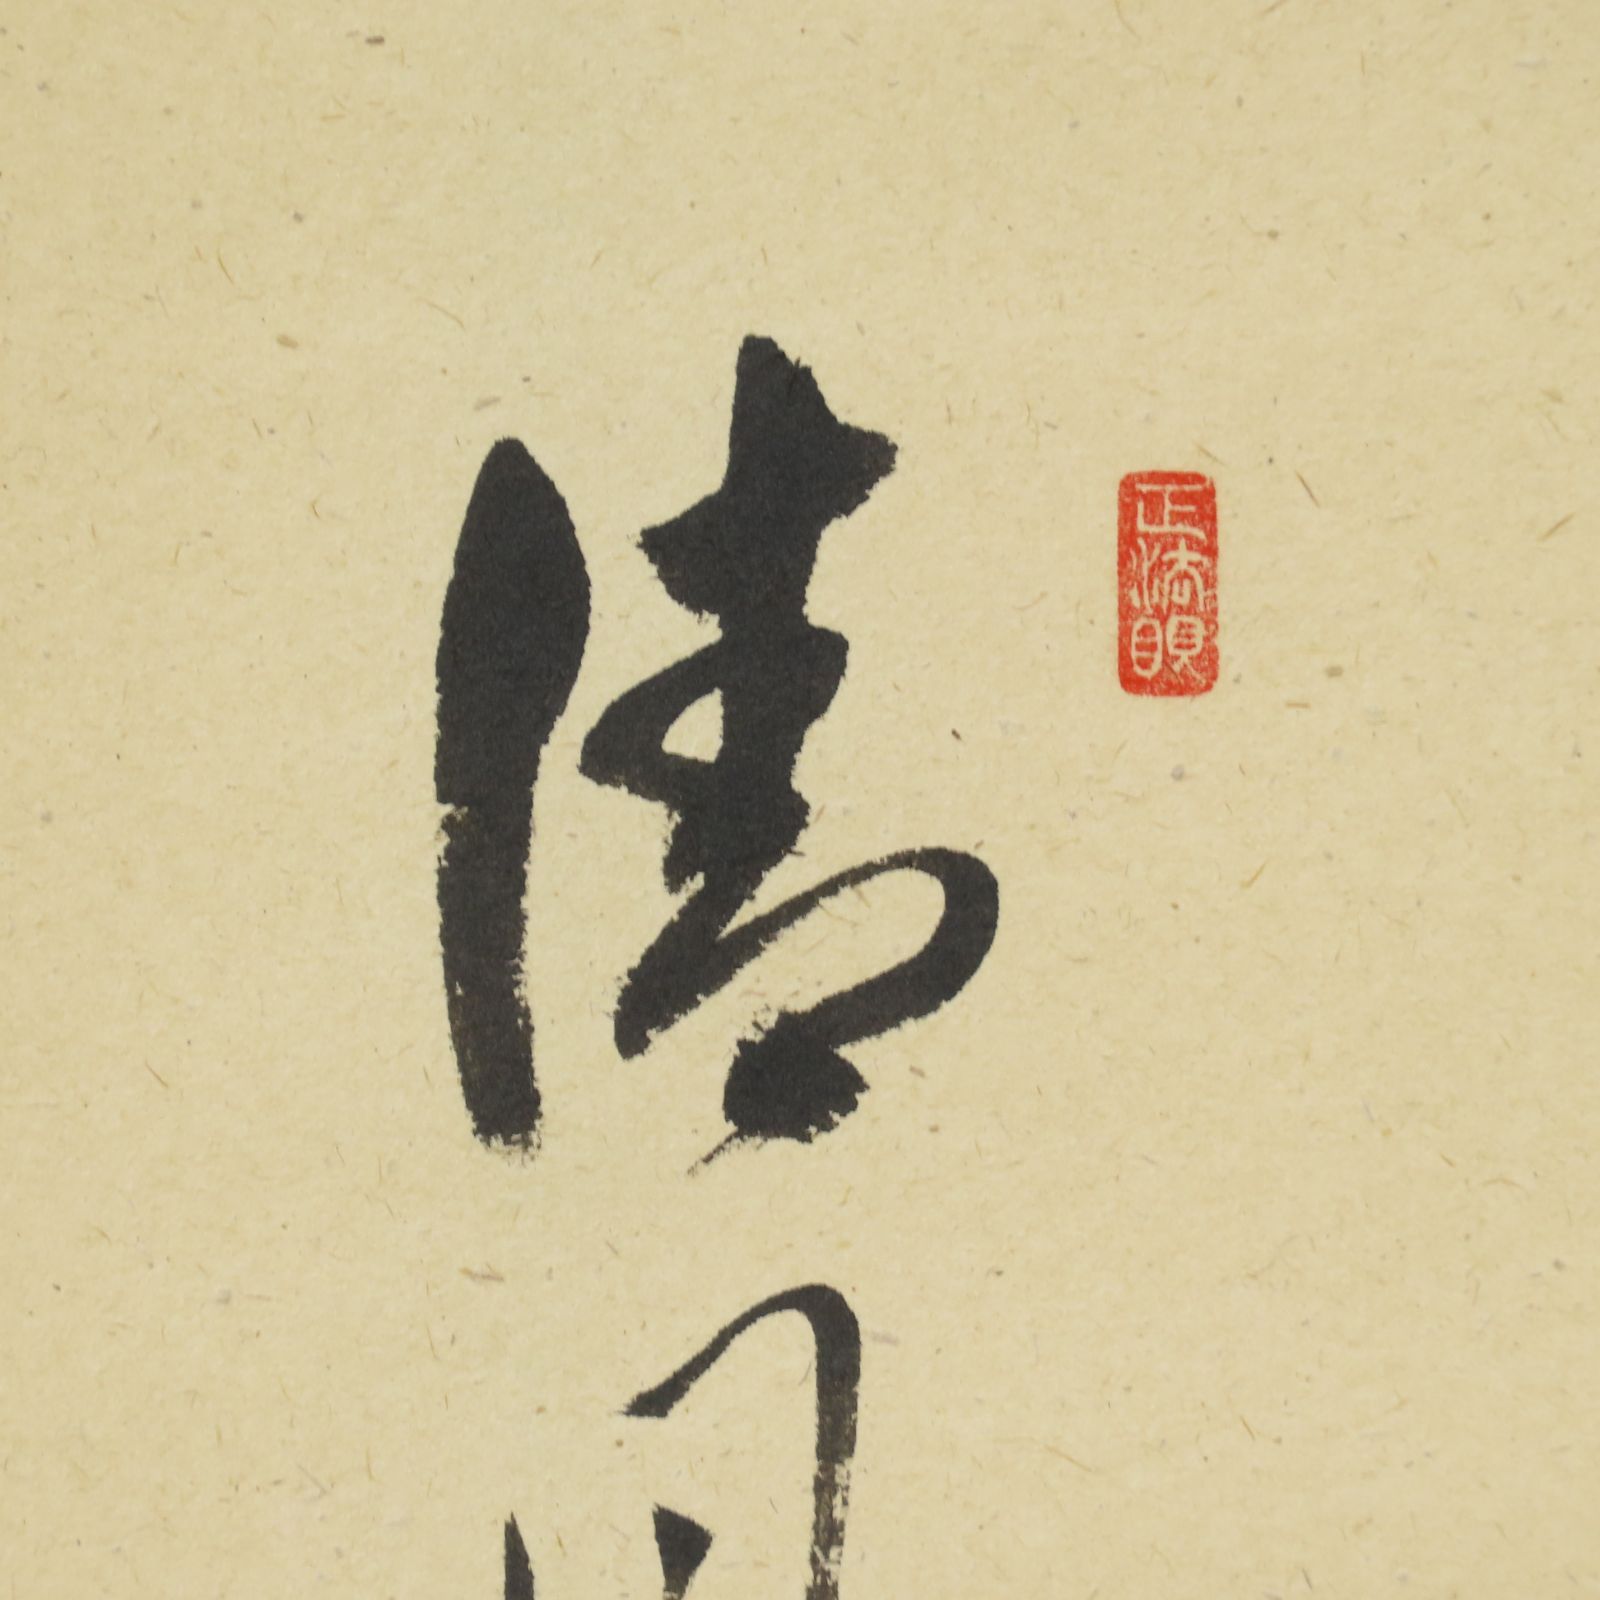 正法眼
清